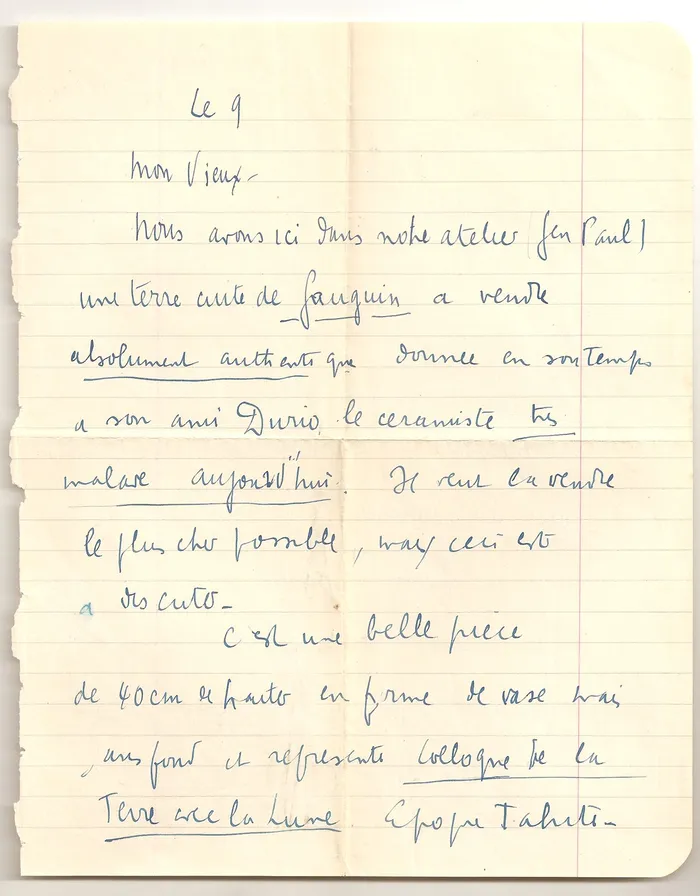 Le 9
Mon Vieux -
Nous avons ici dans notre atelier (Jen Paul)
une terre cuite de Gauguin a vendre
absolument authentique donnee en son temps
a son ami Durio, le ceramiste tres
malade aujourd'hui. Il veut la vendre
le plus cher possible, mais ceci est
a discuter -
C'est une belle piece
de 40 cm de hauter en forme de vase mais
sans fond et represente Colloque de la
Terre avec la Lune. Epoque Tahiti -